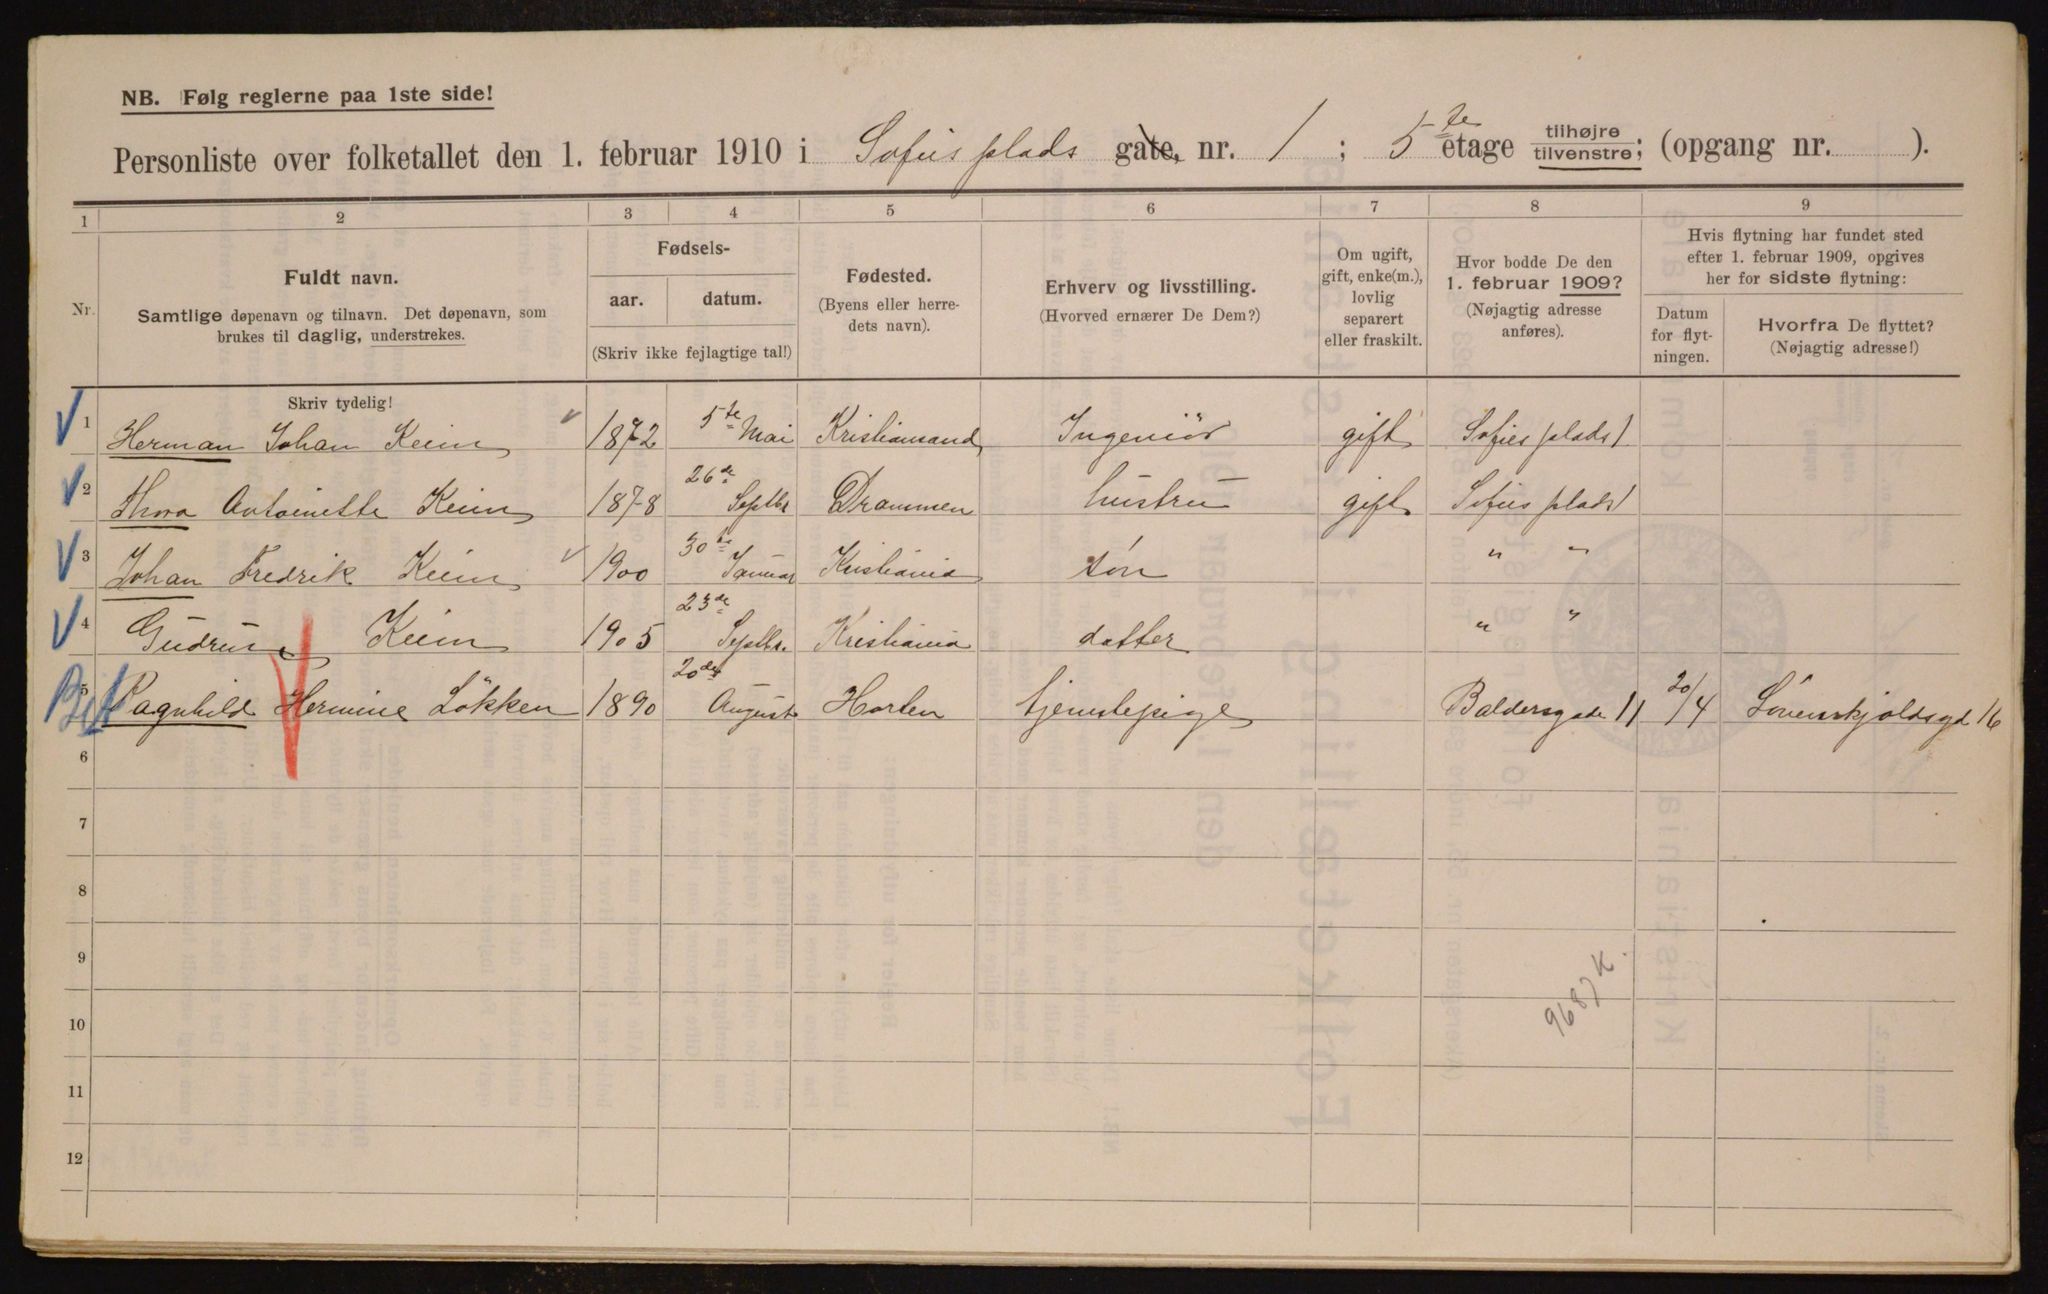 NB. Følg reglerne paa 1ste side!
Personliste over folketallet den 1. februar 1910 i Sofies plads gate, nr. 1 ; 5te etage tilhøjre tilvenstre; (opgang nr. ).
1 2 3 4 5 6 7 8 9
Nr.
Fuldt navn.
Samtlige døpenavn og tilnavn. Det døpenavn, som
brukes til daglig, understrekes.
Fødsels-
aar. datum.
(Skriv ikke fejlagtige tal!)
Fødested.
(Byens eller herre-
dets navn).
Erhverv og livsstilling.
(Hvorved ernærer De Dem?)
Om ugift,
gift, enke(m.),
lovlig
separert
eller fraskilt.
Hvor bodde De den
1. februar 1909?
(Nøjagtig adresse
anføres).
Hvis flytning har fundet sted
efter 1. februar 1909, opgives
her for sidste flytning:
Datum
for flyt-
ningen.
Hvorfra De flyttet?
(Nøjagtig adresse!)
Skriv tydelig!
1 Herman Johan Keim 1872 5te Mai Kristiansand Ingeniør gift Sofies plads 1
2 Thora Antoinette Keim 1878 26de Septbr Drammen hustru gift Sofies plads 1
3 Johan Fredrik Keim 1900 30te Januar Kristiania søn " "
4 Gudrun Keim 1905 23de Septbr. Kristiania datter " "
5 Ragnhild Hermine Løkken 1890 20de August Horten tjenstepige Baldersgade 11 20/4 Løvenskjoldsgd 16
6
7
8
9
10
11
12